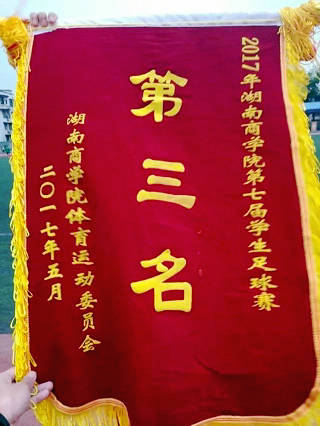 2017年湖南商学院第七届学生足球赛
第三名
湖南商学院体育运动委员会
二〇一七年五月